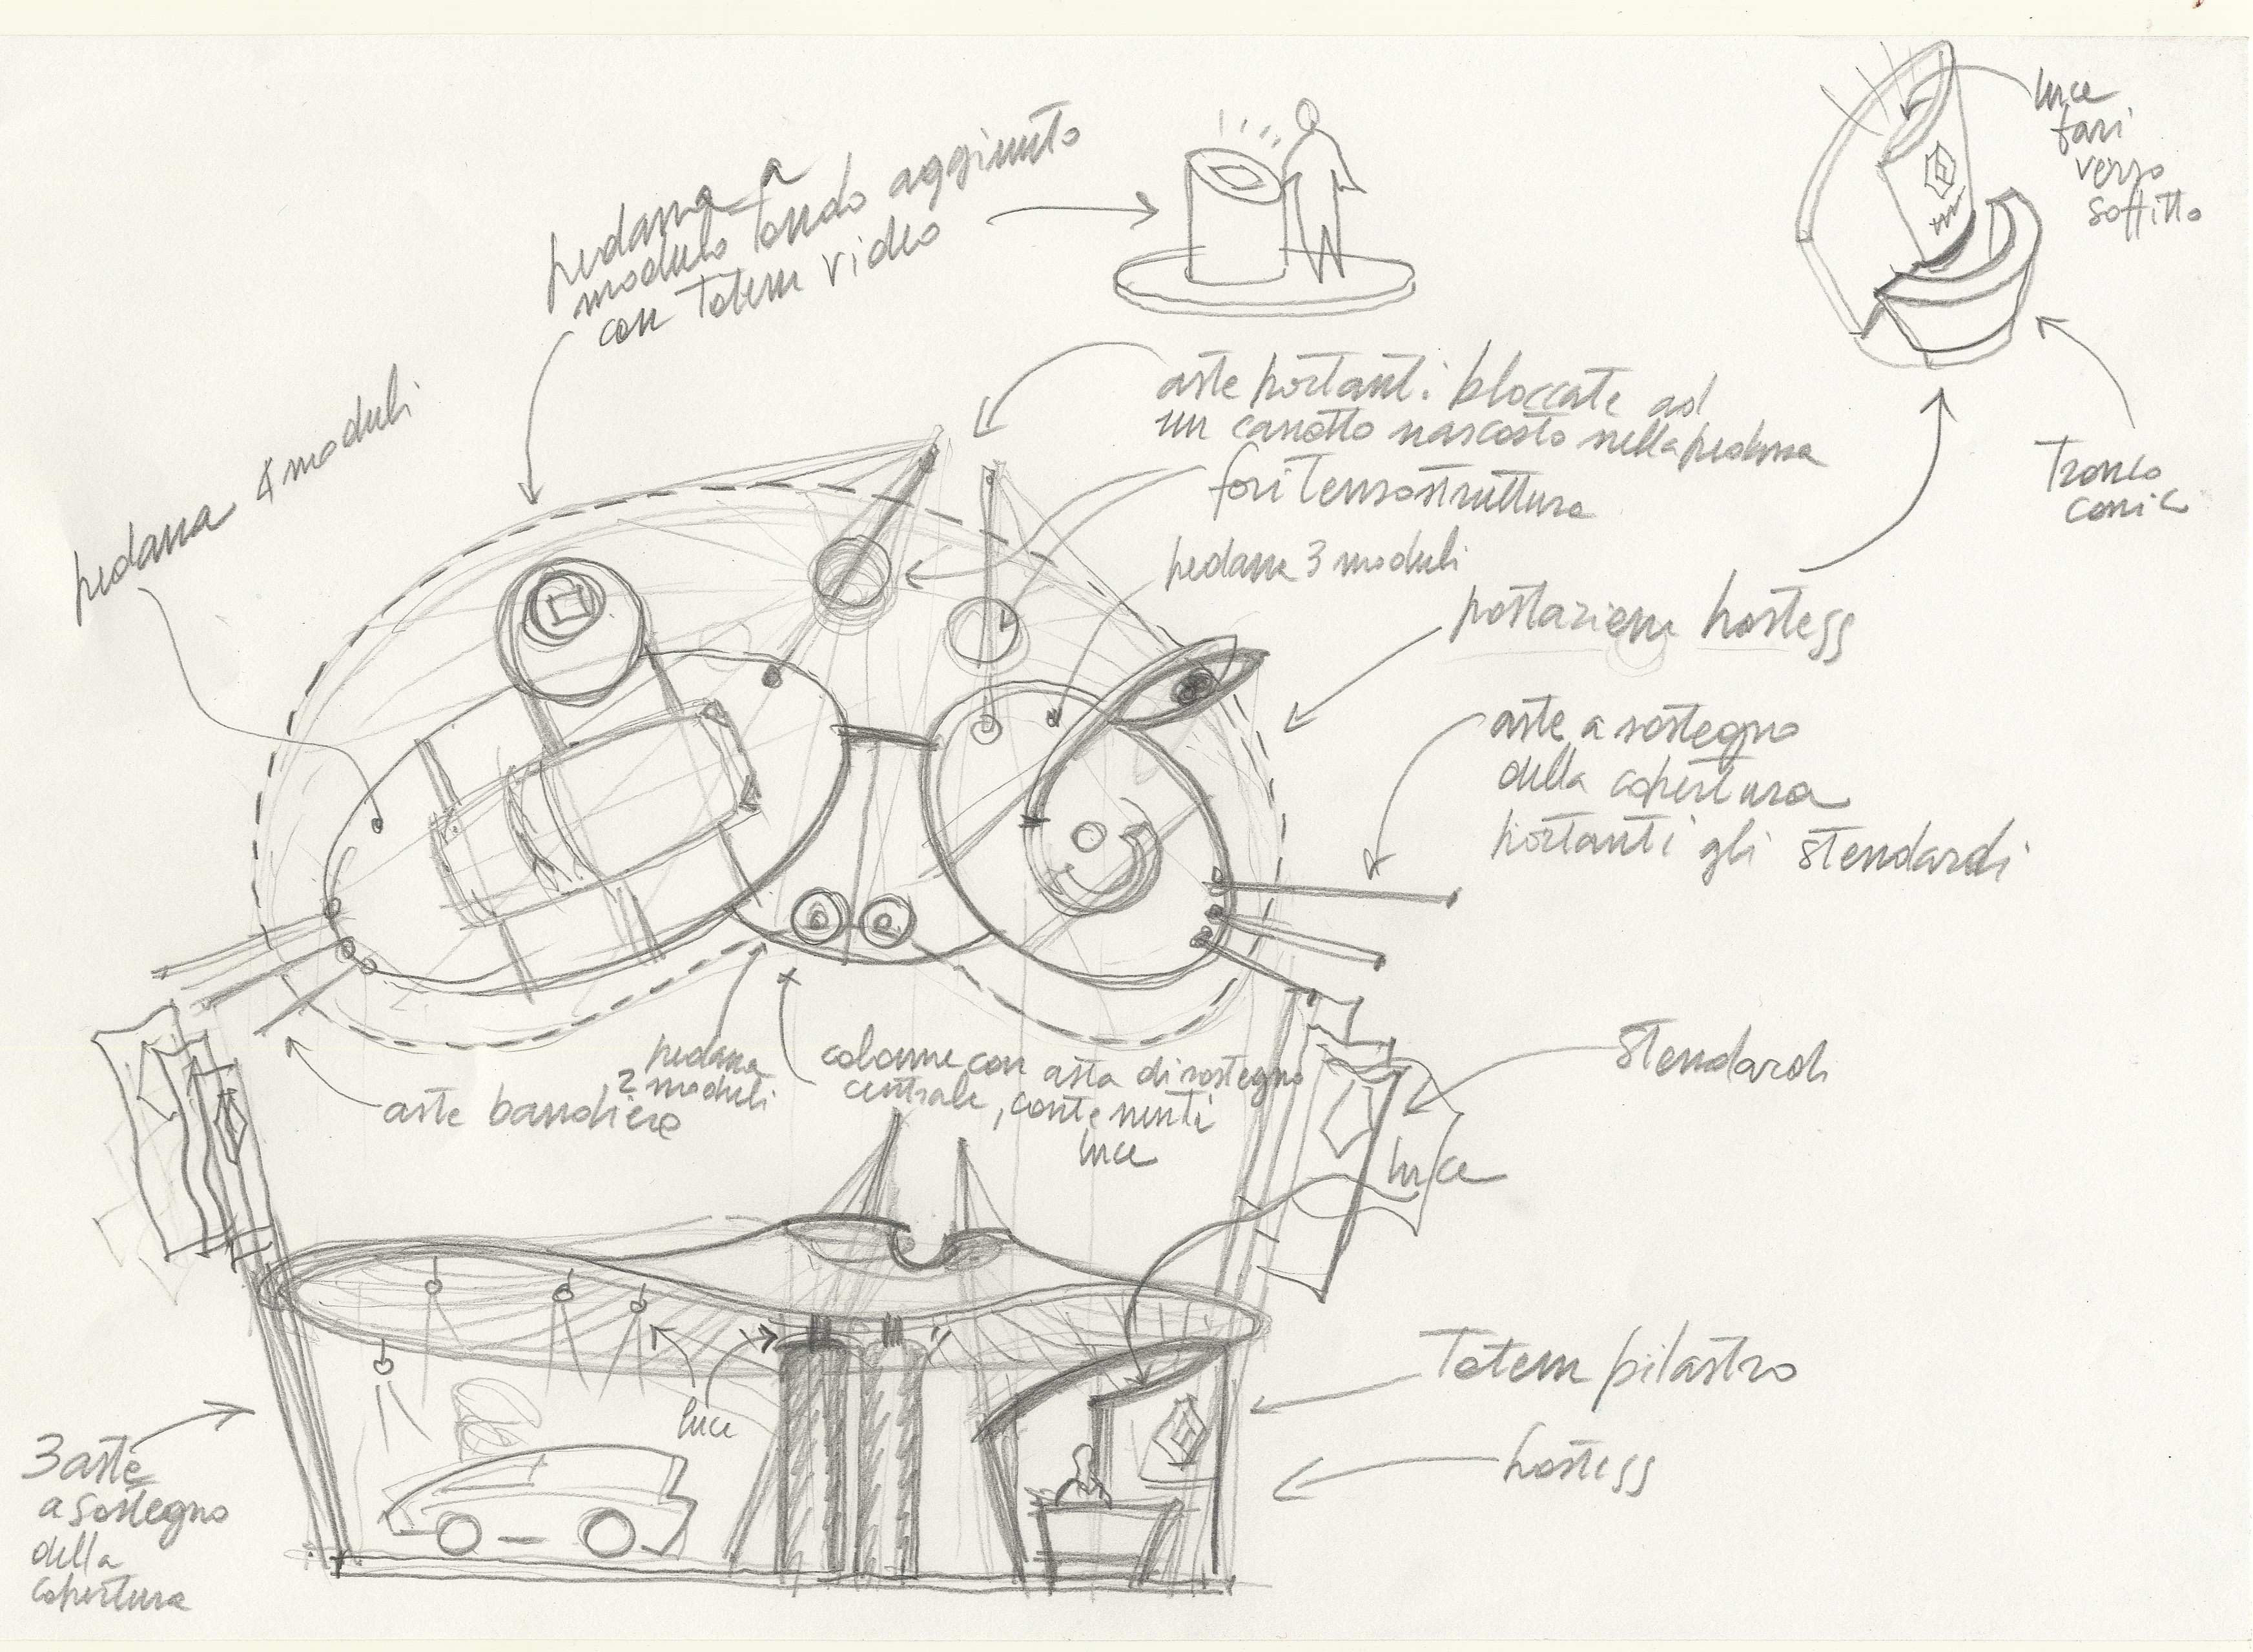 pedana a
modulo tondo aggiunto
con Totem video
luce
fari
verso
soffitto
pedana 4 moduli
aste portanti bloccate ad
un canotto nascosto nella pedana
fori Tensostruttura
Tronco
conico
pedana 3 moduli
postazione hostess
aste a sostegno
della copertura
portanti gli stendardi
pedana
2 moduli
aste bandiere
colonne con asta di sostegno
centrale, contenenti
luce
stendardi
luce
luce
Totem pilastro
hostess
3 aste
a sostegno
della
copertura